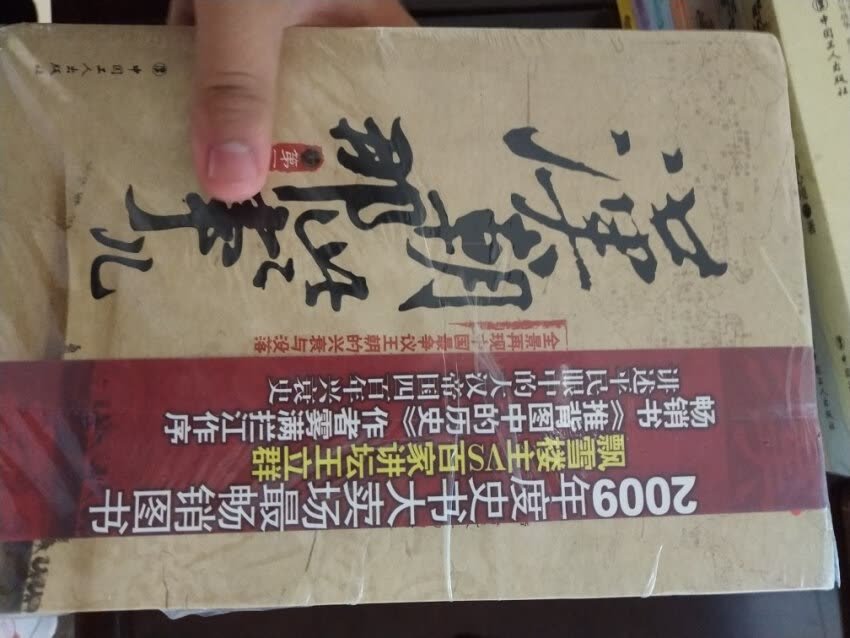 2009年度史书大卖场最畅销图书
飘雪楼主VS百家讲坛王立群
畅销书《推背图中的历史》作者雾满拦江作序
讲述平民眼中的大汉帝国四百年兴衰史
全景再现中国最争议王朝的兴衰与没落
漢朝那些事儿
第一
中国工人出版社
中国工人出版社